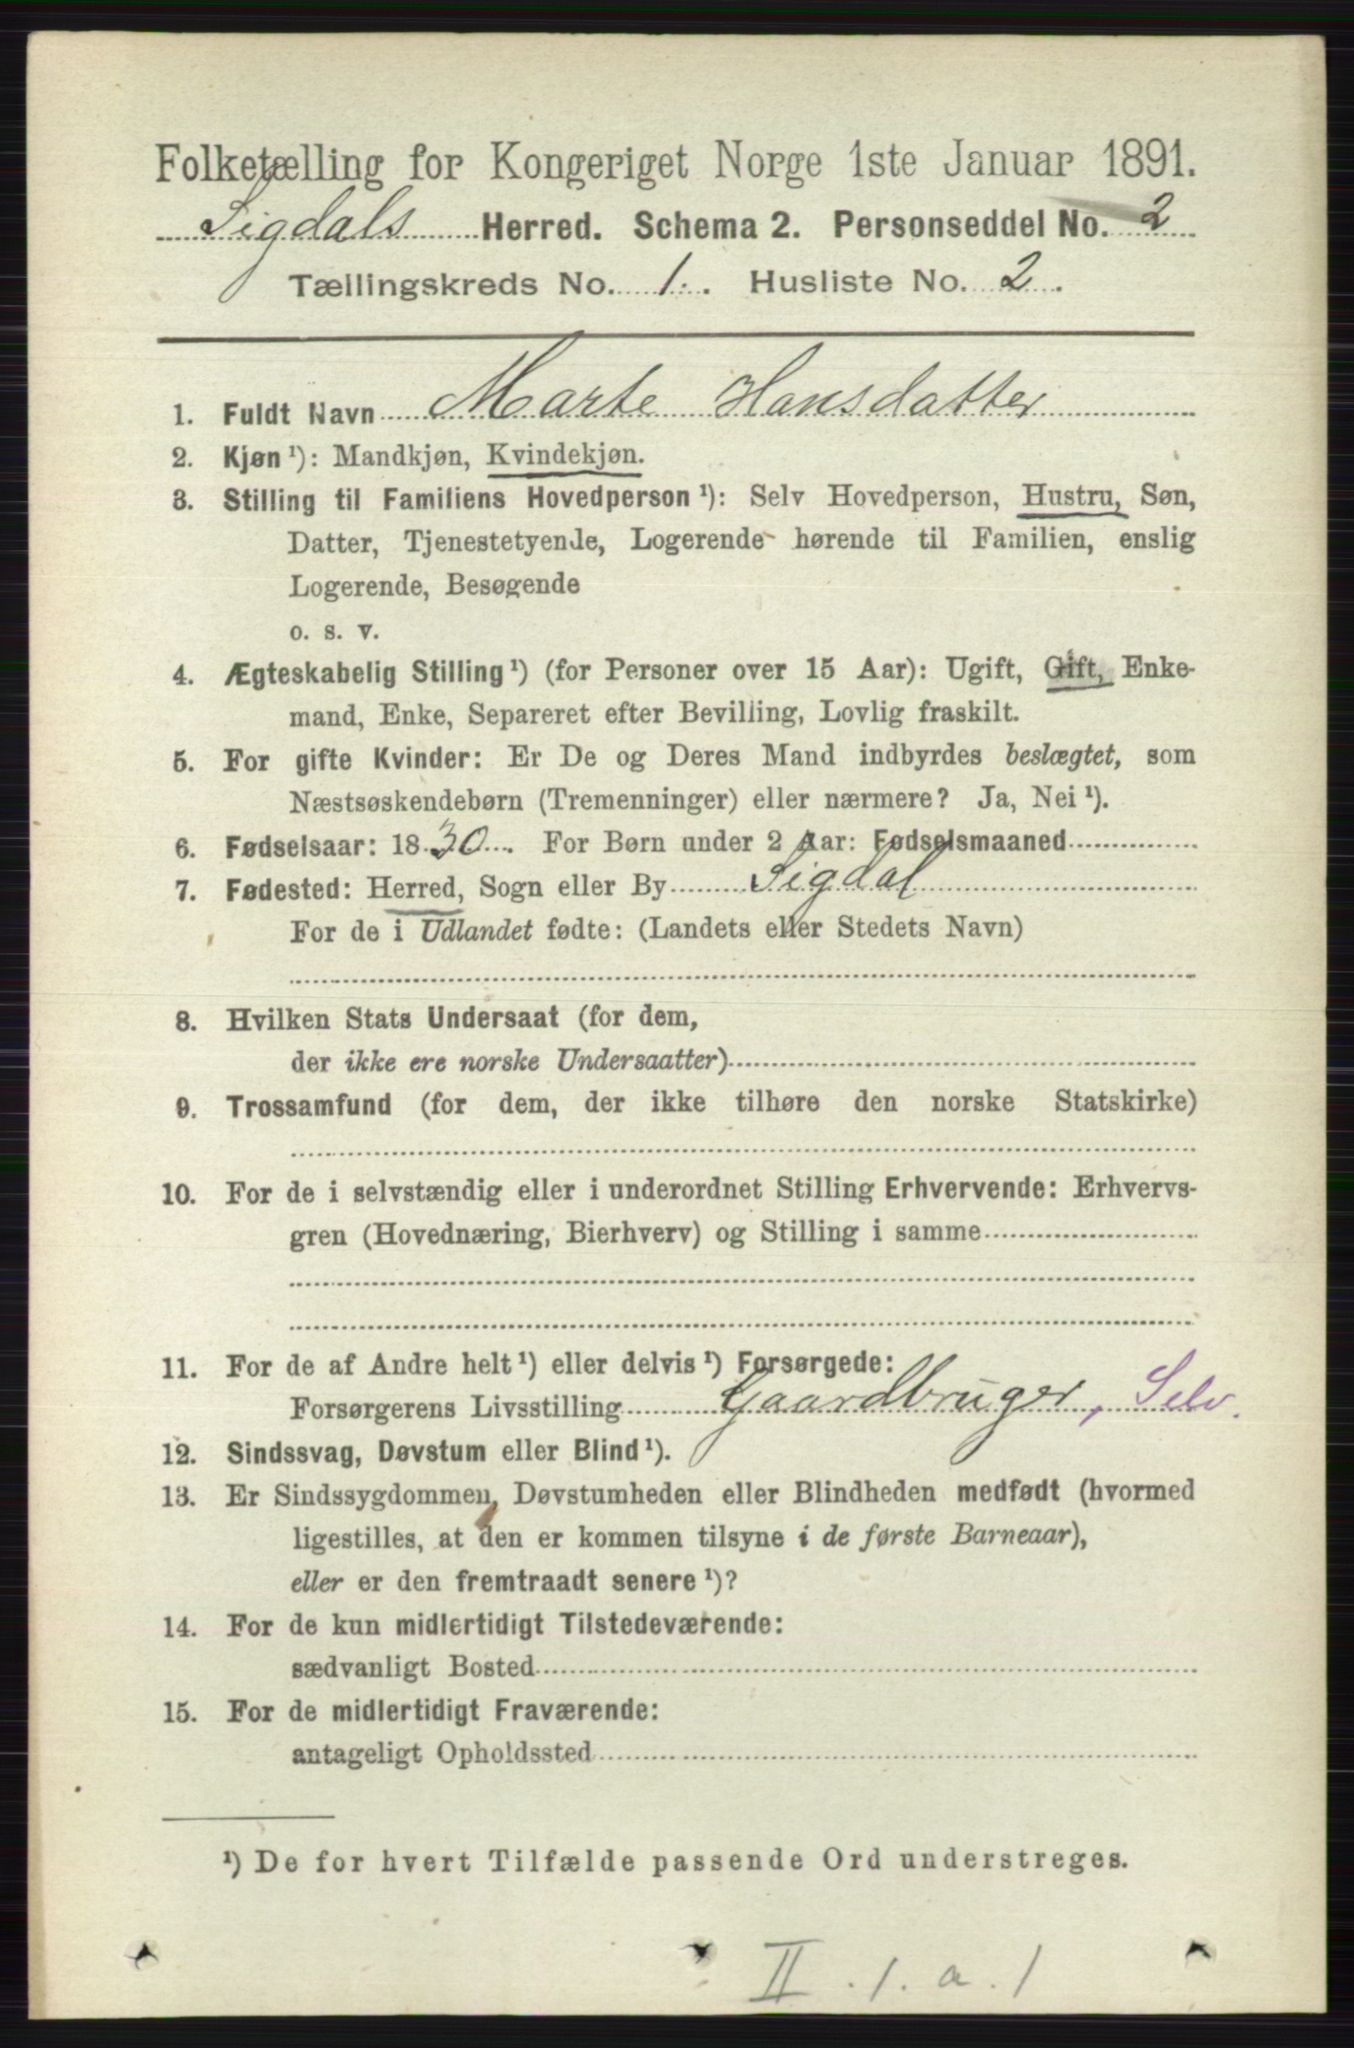 Folketælling for Kongeriget Norge 1ste Januar 1891.
Sigdals Herred. Schema 2. Personseddel No. 2
Tællingskreds No. 1. Husliste No. 2.
1. Fuldt Navn Marte Hansdatter
2. Kjøn ¹): Mandkjøn, Kvindekjøn.
3. Stilling til Familiens Hovedperson ¹): Selv Hovedperson, Hustru, Søn,
Datter, Tjenestetyende, Logerende hørende til Familien, enslig
Logerende, Besøgende
o. s. v.
4. Ægteskabelig Stilling ¹) (for Personer over 15 Aar): Ugift, Gift, Enke-
mand, Enke, Separeret efter Bevilling, Lovlig fraskilt.
5. For gifte Kvinder: Er De og Deres Mand indbyrdes beslægtet, som
Næstsøskendebørn (Tremenninger) eller nærmere? Ja, Nei ¹).
6. Fødselsaar: 1830. For Børn under 2 Aar: Fødselsmaaned
7. Fødested: Herred, Sogn eller By Sigdal
For de i Udlandet fødte: (Landets eller Stedets Navn)
8. Hvilken Stats Undersaat (for dem,
der ikke ere norske Undersaatter)
9. Trossamfund (for dem, der ikke tilhøre den norske Statskirke)
10. For de i selvstændig eller i underordnet Stilling Erhvervende: Erhvervs-
gren (Hovednæring, Bierhverv) og Stilling i samme
11. For de af Andre helt ¹) eller delvis ¹) Forsørgede:
Forsørgerens Livsstilling Gaardbruger, Selv.
12. Sindssvag, Døvstum eller Blind ¹).
13. Er Sindssygdommen, Døvstumheden eller Blindheden medfødt (hvormed
ligestilles, at den er kommen tilsyne i de første Barneaar),
eller er den fremtraadt senere ¹)?
14. For de kun midlertidigt Tilstedeværende:
sædvanligt Bosted
15. For de midlertidigt Fraværende:
antageligt Opholdssted
¹) De for hvert Tilfælde passende Ord understreges.
II . 1 . a . 1